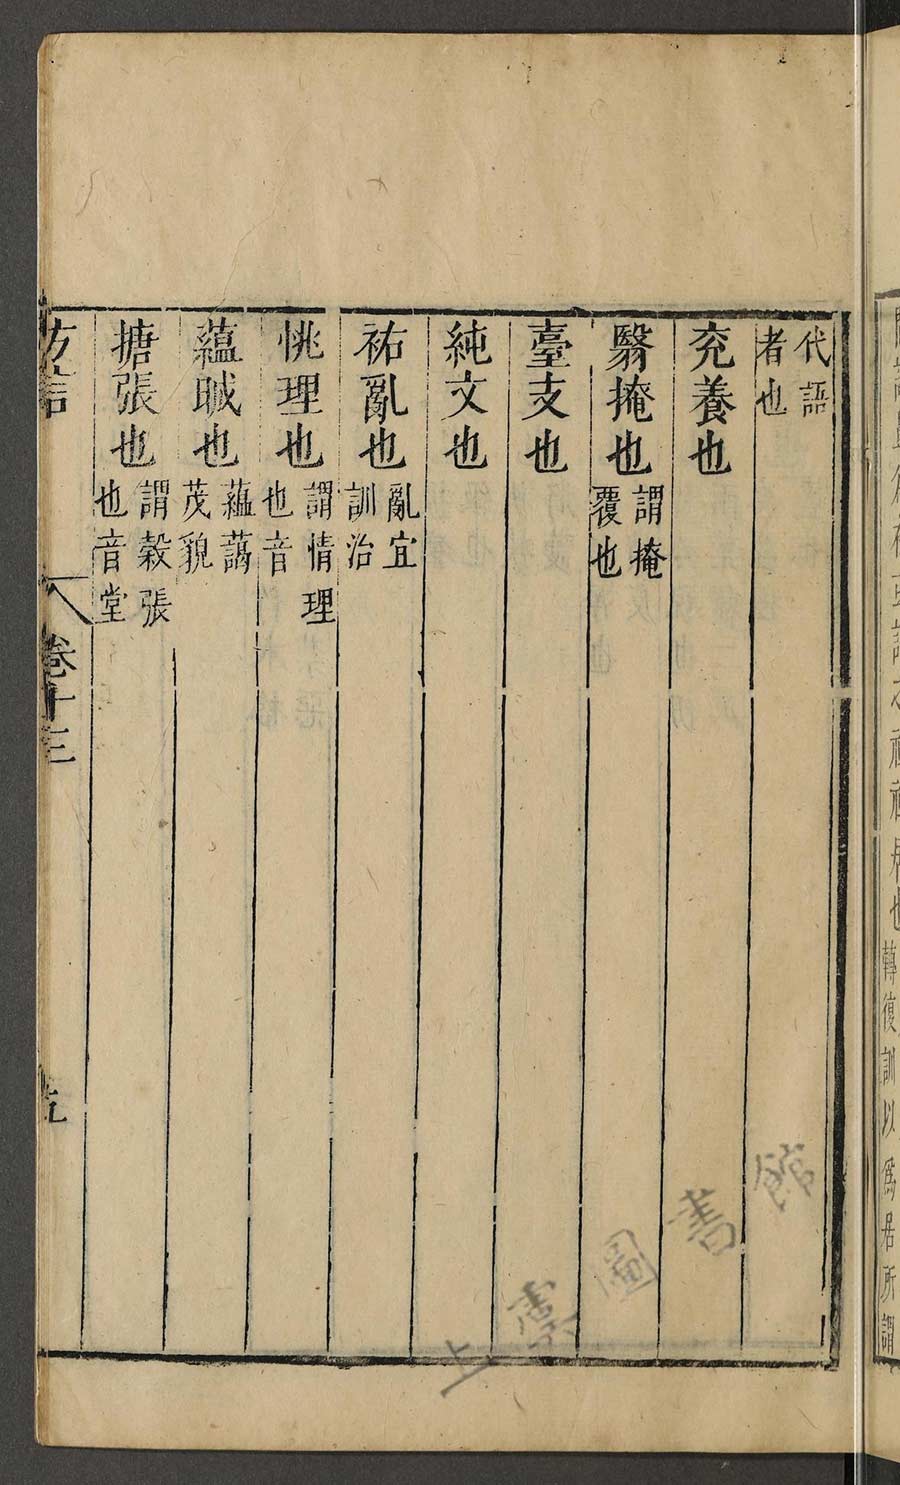 代語
者也
兖養也
翳掩也 謂掩
覆也
臺支也
純文也
祐亂也 亂宜
訓治
恌理也 謂情理
也音
蘊晠也 蘊藹
茂貌
搪張也 謂穀張
也音堂
方言
卷十三
轉復訓以爲居所謂
上雲圖書館